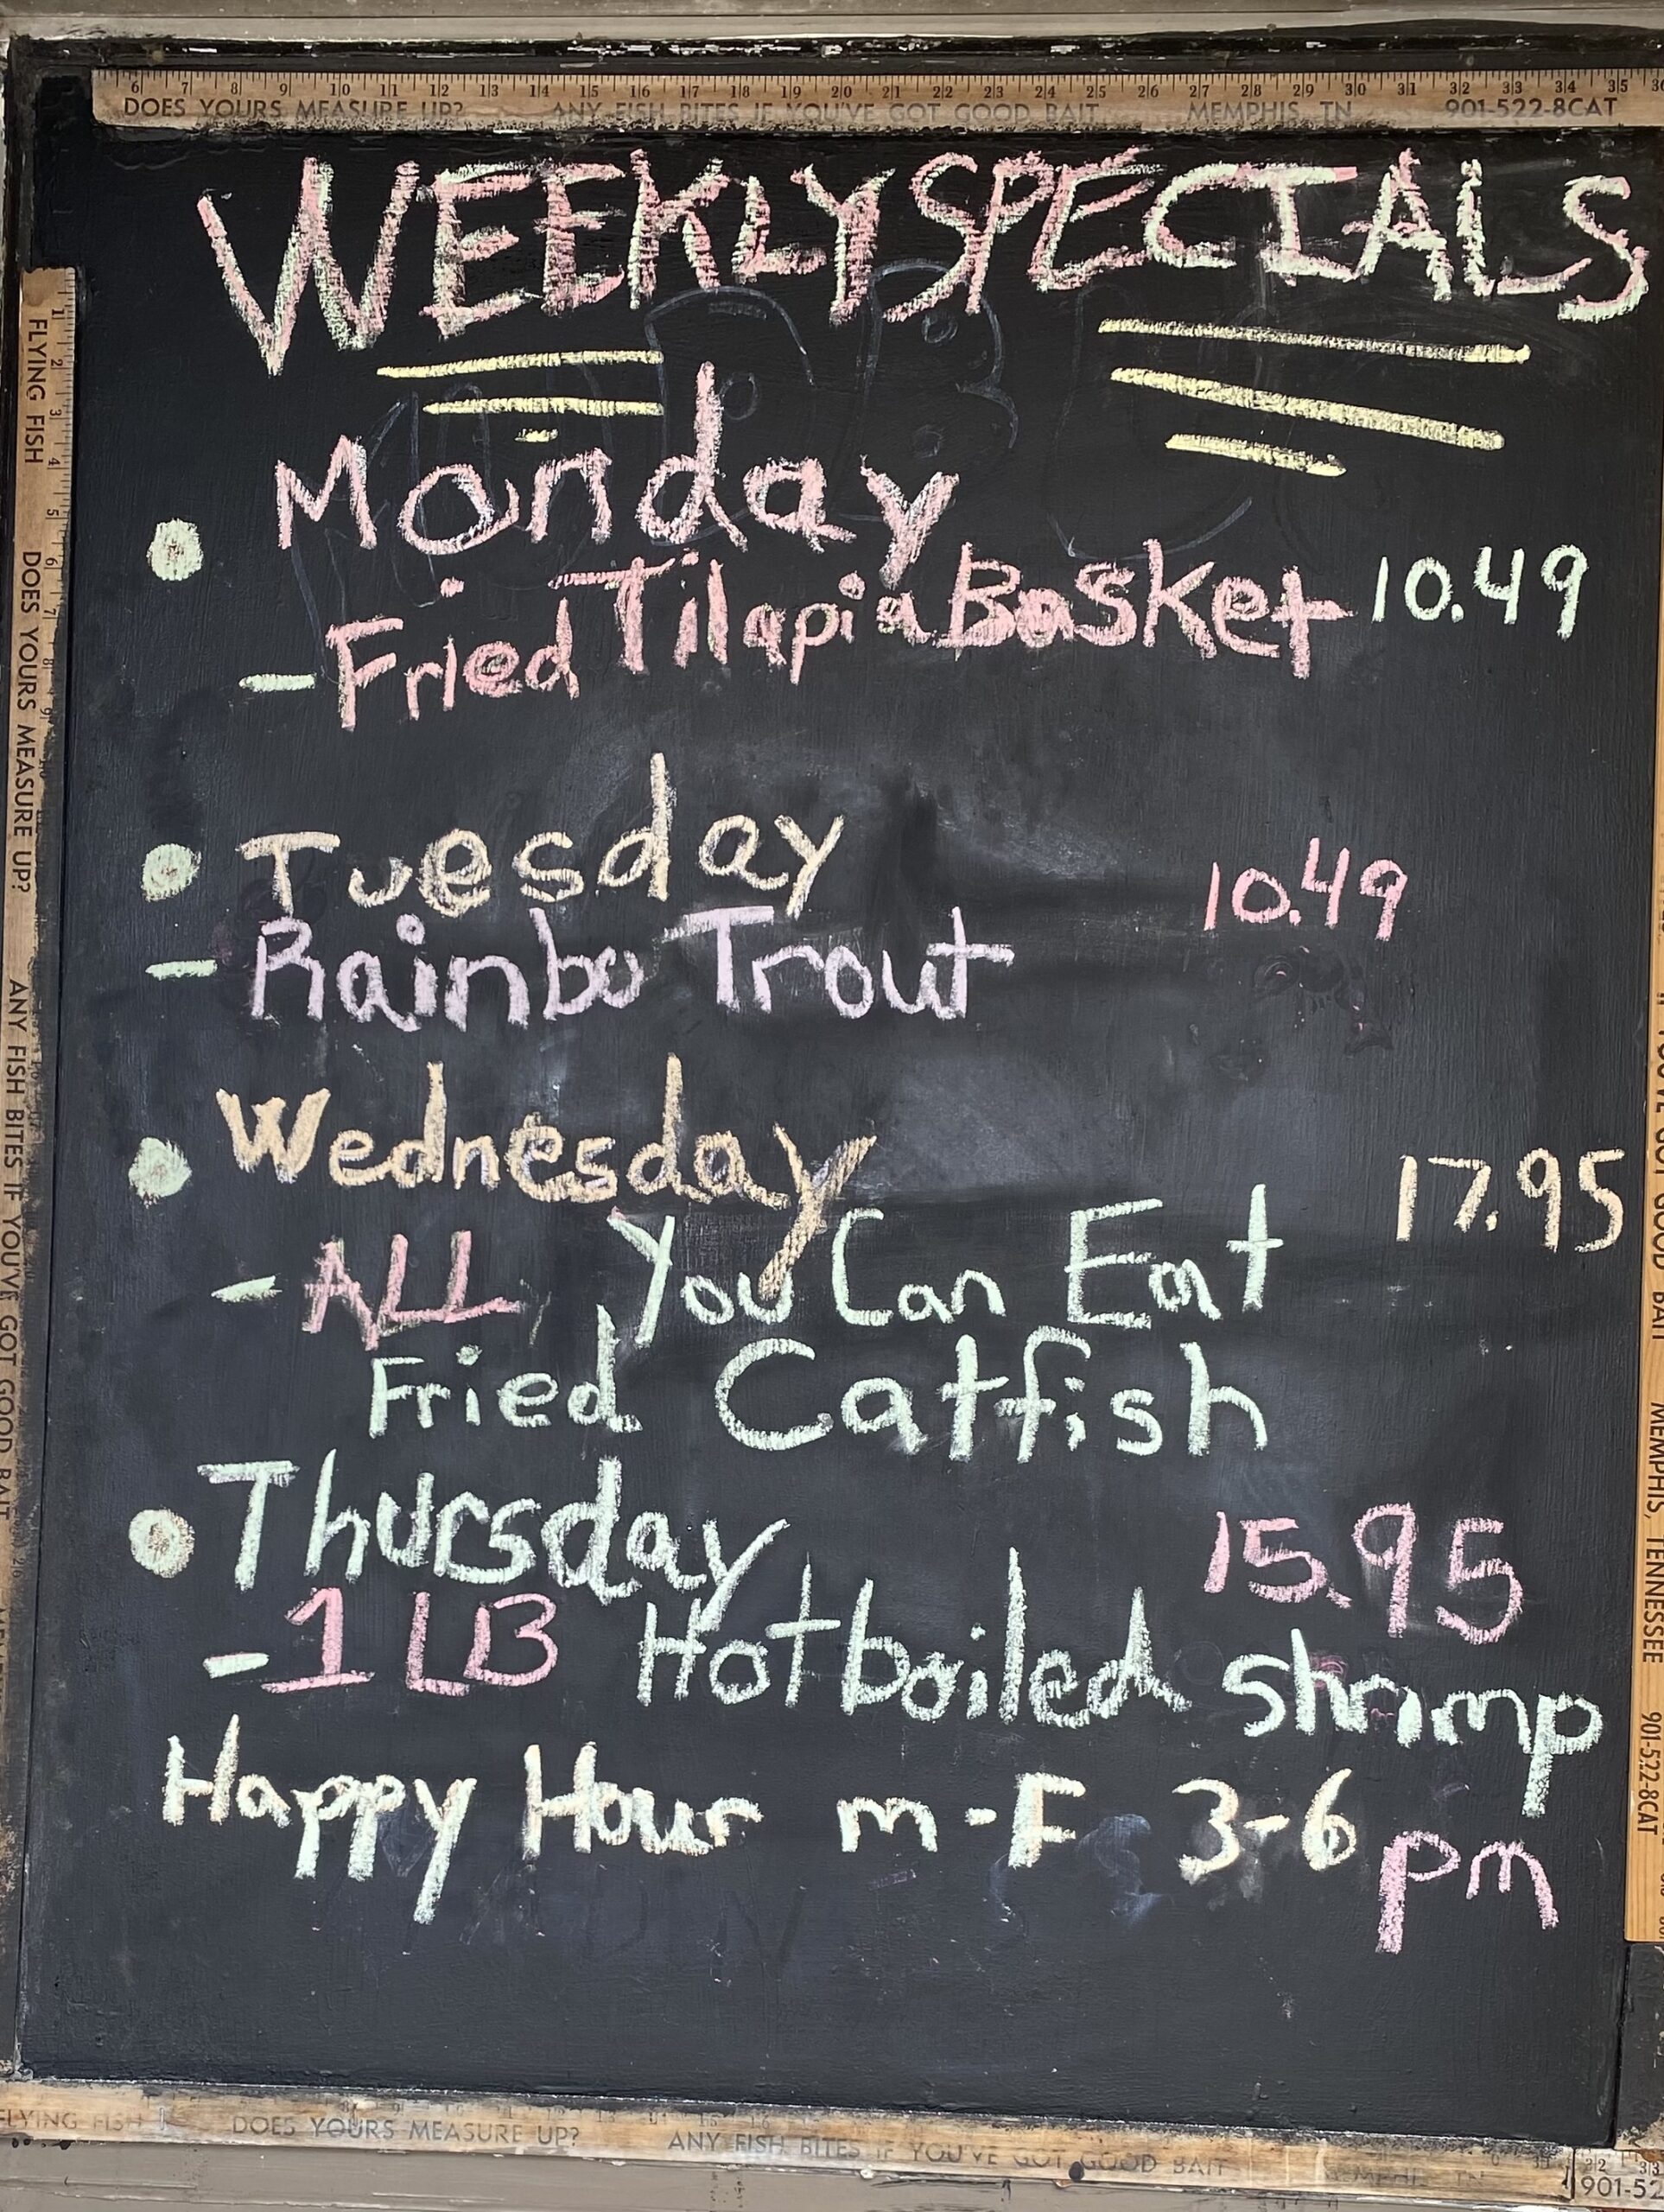 6 7 8 9 10 11 12 13 14 15 16 17 18 19 20 21 22 23 24 25 26 27 28 29 30 31 32 33 34 35 36
DOES YOURS MEASURE UP? ANY FISH BITES IF YOU'VE GOT GOOD BAIT MEMPHIS, TN 901-522-8CAT
WEEKLY SPECIALS
Monday
- Fried Tilapia Basket 10.49
Tuesday 10.49
- Rainbo Trout
Wednesday 17.95
- ALL You Can Eat
Fried Catfish
Thursday 15.95
- 1 LB Hot boiled shrimp
Happy Hour m-F 3-6 pm
FLYING FISH DOES YOURS MEASURE UP? ANY FISH BITES IF YOU'VE GOT GOOD BAIT
GOOD BAIT MEMPHIS, TENNESSEE 901-522-8CAT
FLYING FISH DOES YOURS MEASURE UP? ANY FISH BITES IF YOU'VE GOT GOOD BAIT MEMPHIS, TN
901-52